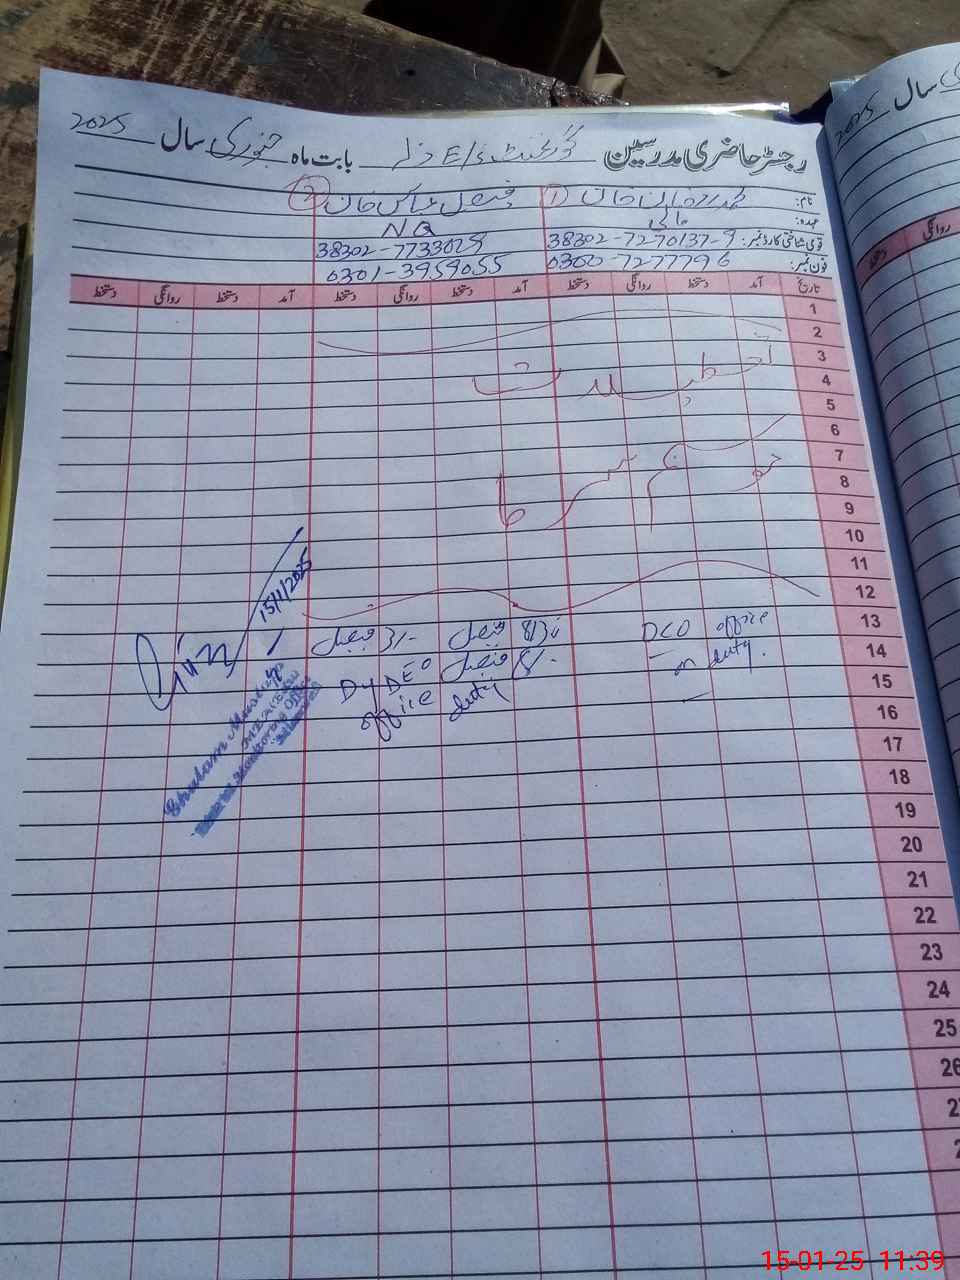 رجسٹر حاضری مدرسین گورنمنٹ E/S بابت ماہ جنوری سال 2025
نام: ① محمد رمضان خان ② فیصل عباس خان
عہدہ: مالی NQ
قومی شناختی کارڈ نمبر: 38302-7270137-9 38302-7733025
فون نمبر: 0300-7277796 0301-3959055
تاریخ آمد دستخط روانگی دستخط آمد دستخط روانگی دستخط آمد دستخط روانگی دستخط
1
2
3
4 تعطیلات
5
6
7
8 موسم سرما
9
10
11
12
13 DCO office 8/30 فیصل 3/- فیصل
14 on duty. 8/- فیصل Dy DEO
15 office duty
16
17
18
19
20
21
22
23
24
25
26
15/1/2025
Ghulam Mustafa
سال 2025
روانگی دستخط
15-01-25 11:39